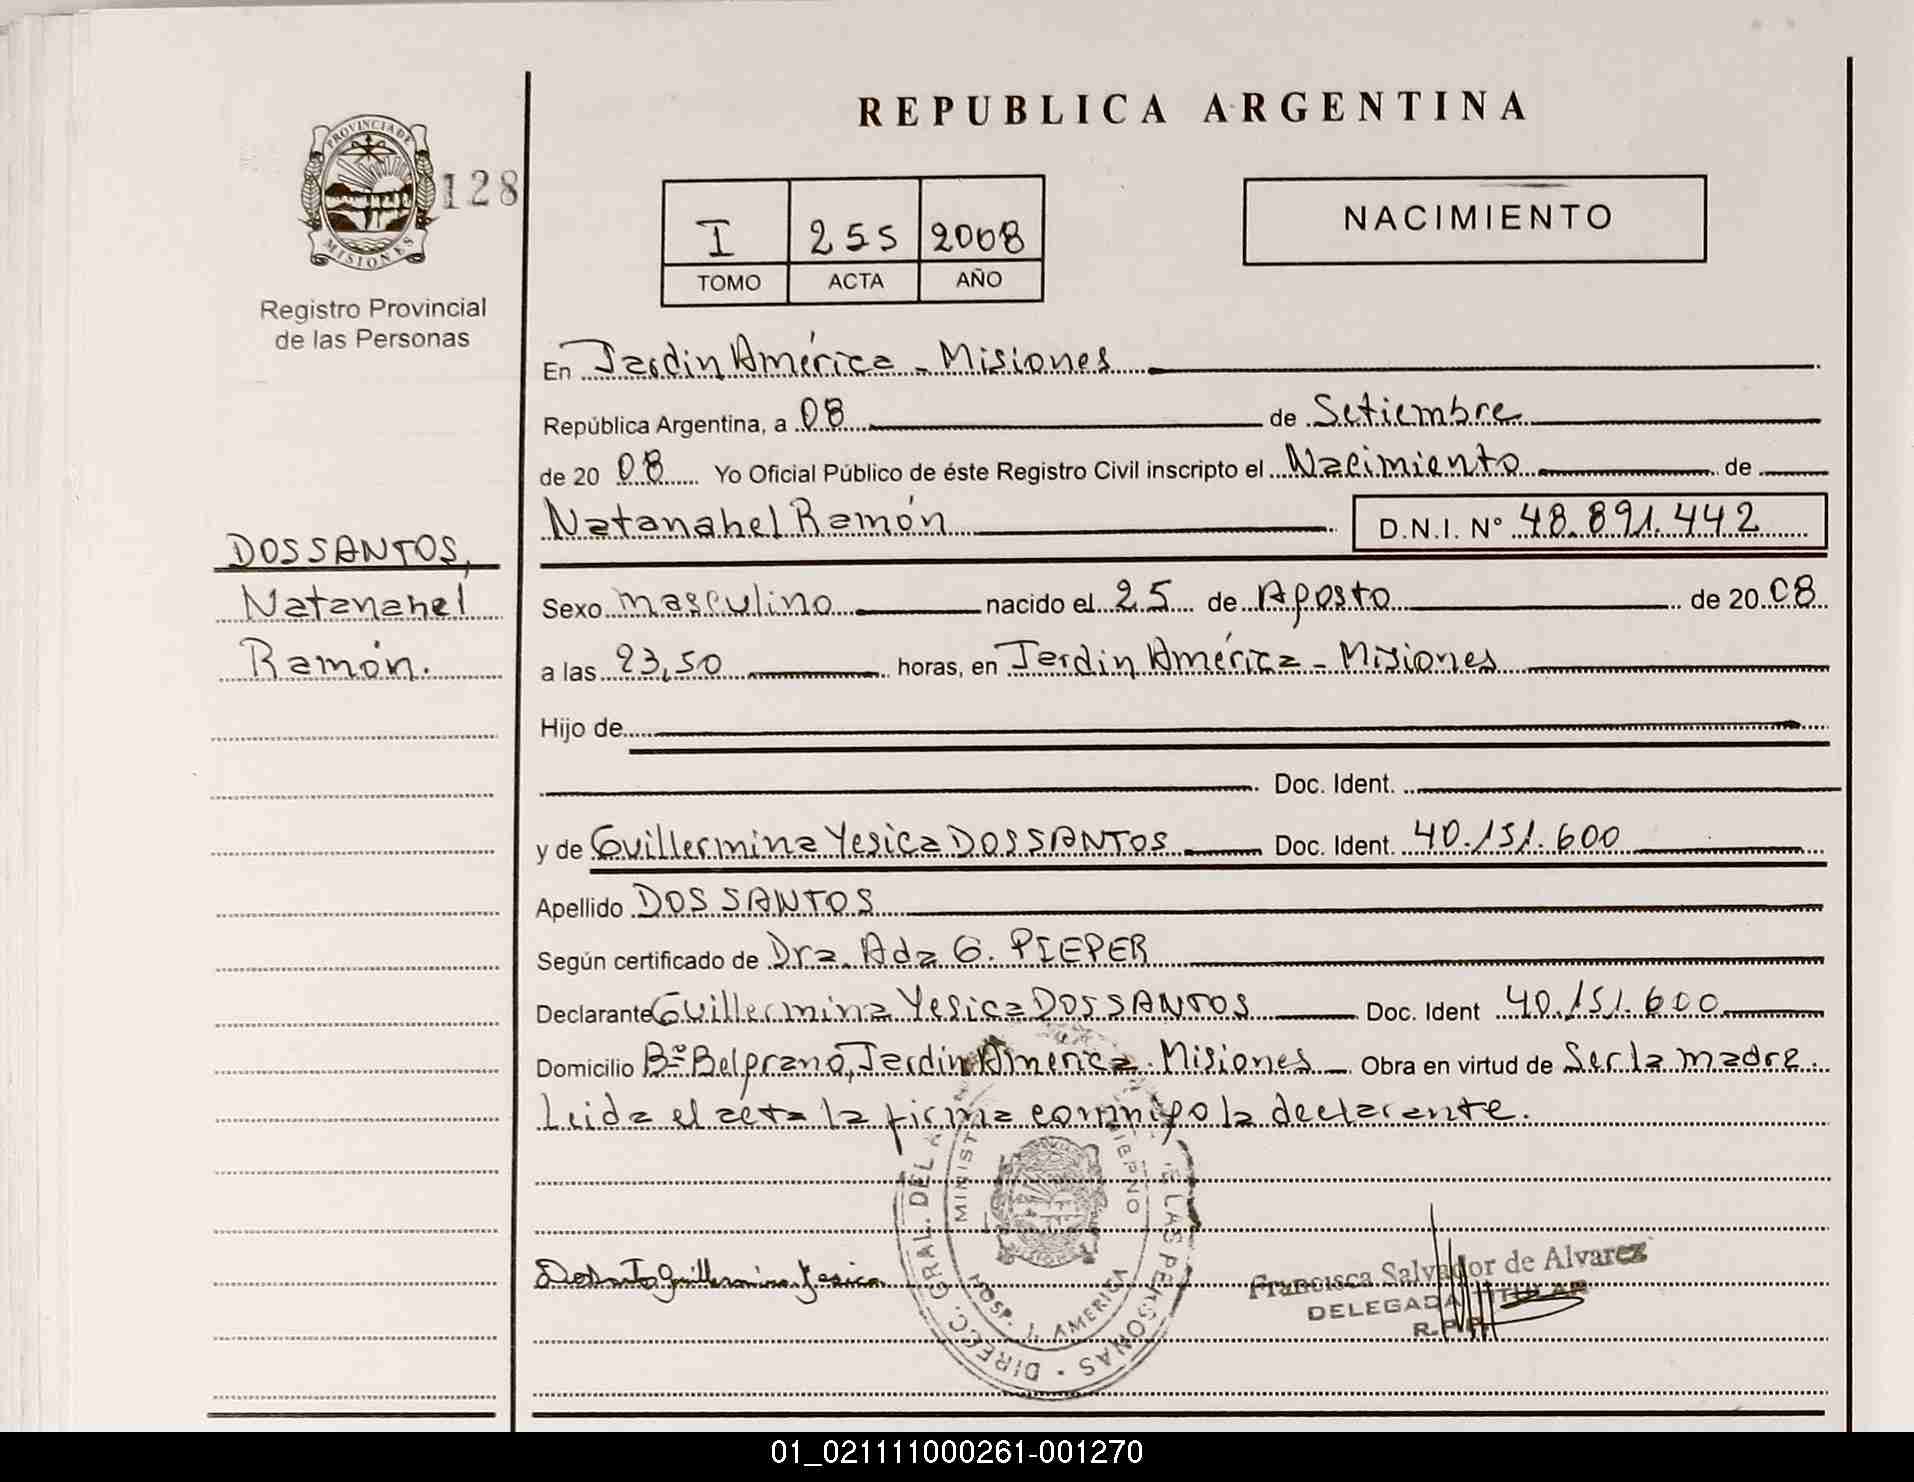 REPUBLICA ARGENTINA
PROVINCIA DE
MISIONES
128
Registro Provincial
de las Personas
I 255 2008
TOMO ACTA AÑO
NACIMIENTO
En Jardin América - Misiones
República Argentina, a 08 de Setiembre
de 20 08 Yo Oficial Público de éste Registro Civil inscripto el Nacimiento de
Natanahel Ramón D.N.I. Nº 48.891.442
DOS SANTOS,
Natanahel
Ramón.
Sexo masculino nacido el 25 de Agosto de 20 08
a las 23,50 horas, en Jardin América - Misiones
Hijo de
Doc. Ident.
y de Guillermina Yesica DOS SANTOS Doc. Ident. 40.151.600
Apellido DOS SANTOS
Según certificado de Dra. Ada G. PIEPER
Declarante Guillermina Yesica DOS SANTOS Doc. Ident 40.151.600
Domicilio Bº Belgrano, Jardin America - Misiones Obra en virtud de Ser la madre.
Leida el acta la firma conmigo la declarante.
DIRECC. GRAL. DEL LAS PERSONAS
HOSP. J. AMERICA
Guillermina Yesica
Francisca Salvador de Alvarez
DELEGADA TITULAR
R.P.P.
01_021111000261-001270